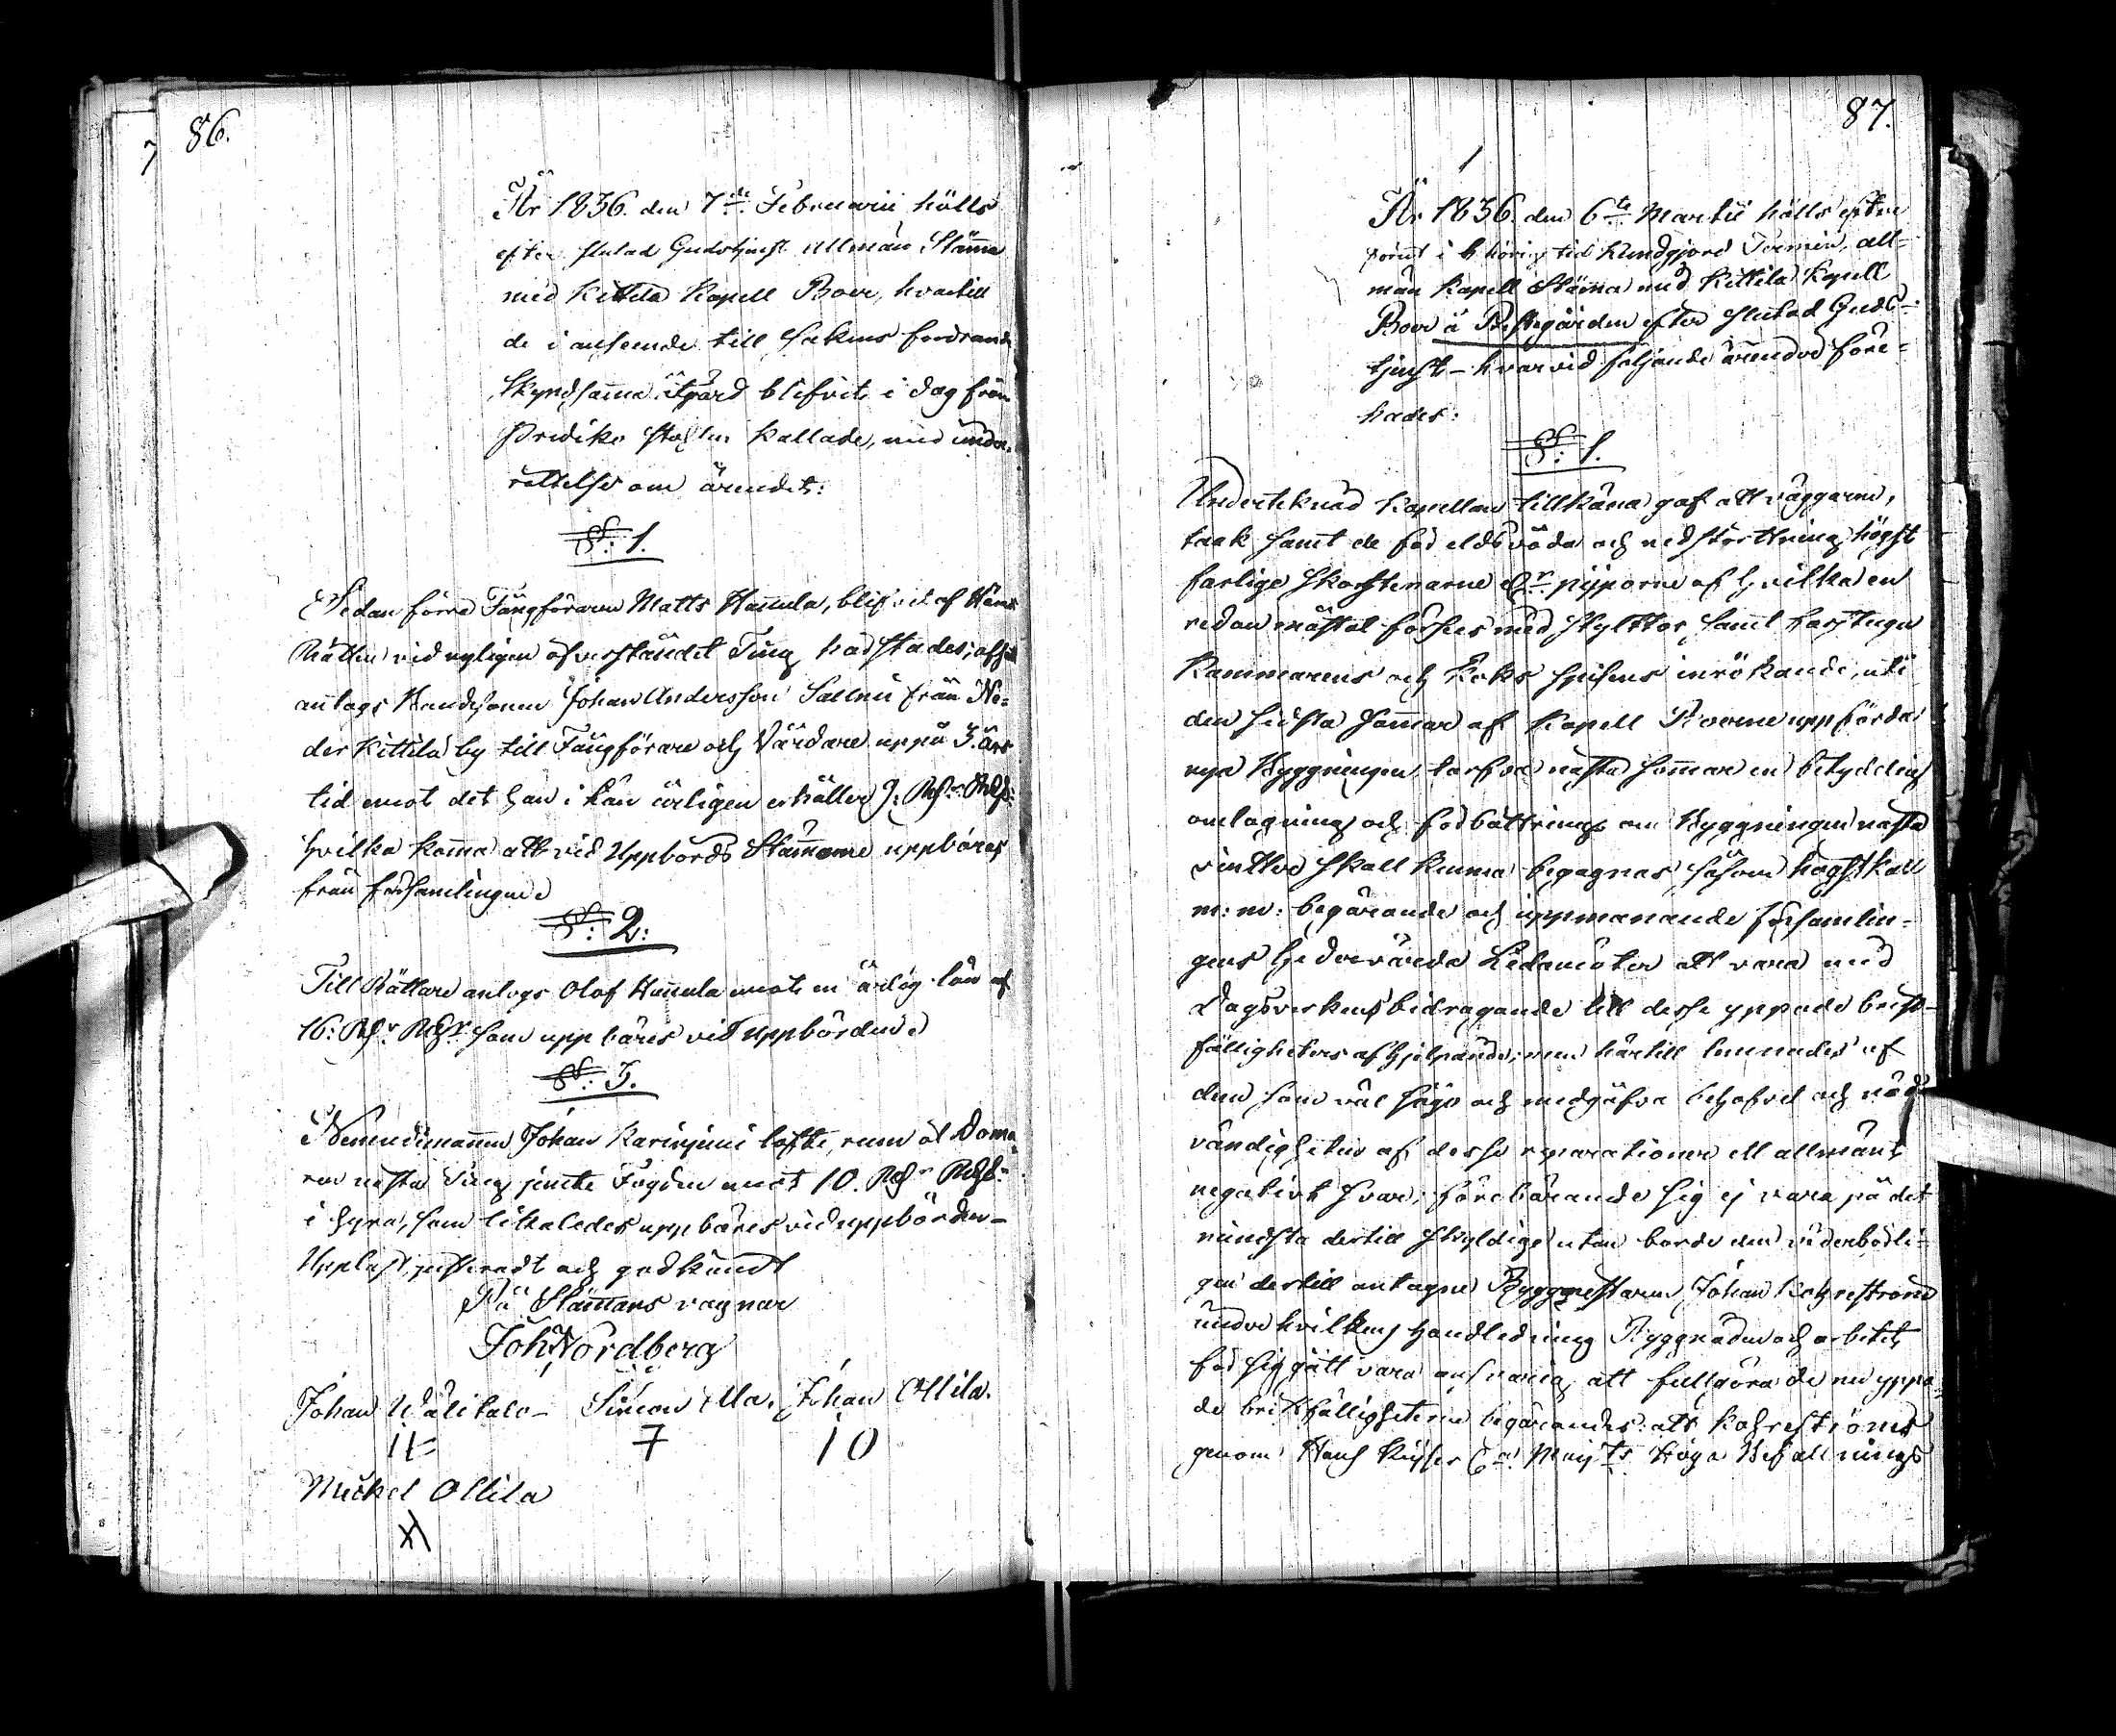 86.
År 1836. den 7de Februarii hölls
efter slutad Gudstjenst allmän Stämma
med Kittilä Kapell Boer, hvartill
de i anseende till sakens fordrande
skyndsamma åtgärd blifvit i dag från
Predikostolen kallade, med under-
rättelse om ärendet:
§: 1.
Sedan förre Fångföraren Matts Hannula, blifvit af Härads
Rätten vid nyligen öfverståndet Ting härstädes, afsatt
antogs Bondesonen Johan Andersson Salmi från Ne-
der Kittilä by till Fångförare och Vårdare uppå 3. års
tid emot det han i lön årligen erhåller
hvilka komma att vid Uppbörds Stämmorne uppbäras
från församlingen
§: 2:
Till Rättare antogs Olof Hannula emot en årlig lön af
16: som uppbäres vid uppbörden
§: 3.
Nemndemannen Johan Karinjemi lofte, rum åt Doma-
ren nästa Ting jemte Fogden emot 10.
i hyra, som likaledes uppbäres vid uppbörden –
Upplast, justeradt och godkändt
På Stämmans vagnar
Joh Nordberg
Johan Wälitalo – Simon Ala. Johan Ollila.
7 10
Mickel Ollila
87.
År 1836. den 6te Martii hölls efter
förut i behörig tid kundgjord Termin, all-
män Kapell Stämma med Kittilä Kapell
Boer å Prestegården efter slutad Guds-
tjenst – hvarvid följande ärender före-
hades:
§: 1.
Undertecknad Kapellan tillkänna gaf att väggarne,
taak samt de för eldsvåda och nedstörtning högst
farlige skorstenarne pijporne af hvilka en
redan mästol förses med skylttor, samt farstugu
Kammarens och Köks spisens inrökande, uti
den sidsta sommar af Kapell Boerne uppförda
nya Byggningen, tarfva nästa sommar en betydelig
omlagning och förbättring om Byggningen nästa
vintter skall kunna begagnas såsom högst kall
m: m: begärande och uppmanande församlin-
gens hedervärda Ledamöter att vara med
Dagsverkens bidragande till desse yppade brist-
fälligheters afhjelpande; men härtill lemnades af
dem som väl sågo och medgåfvo behofvet och nöd-
vändigheten af desse reparationer ett allmänt
negativt svar, förebärande sig ej vara på det
mindsta dertill skyldige utan borde den vederbörli-
gen dertill antagne Byggmestaren Johan Kohrström
under hvilkens handledning Byggnaden och arbetet
för sig gått vara ansvarig att fullgöra de nu yppa-
de bristfälligheterne begärandes: att Kohrström
genom Hans Kejser Maijts Höga Befallnings